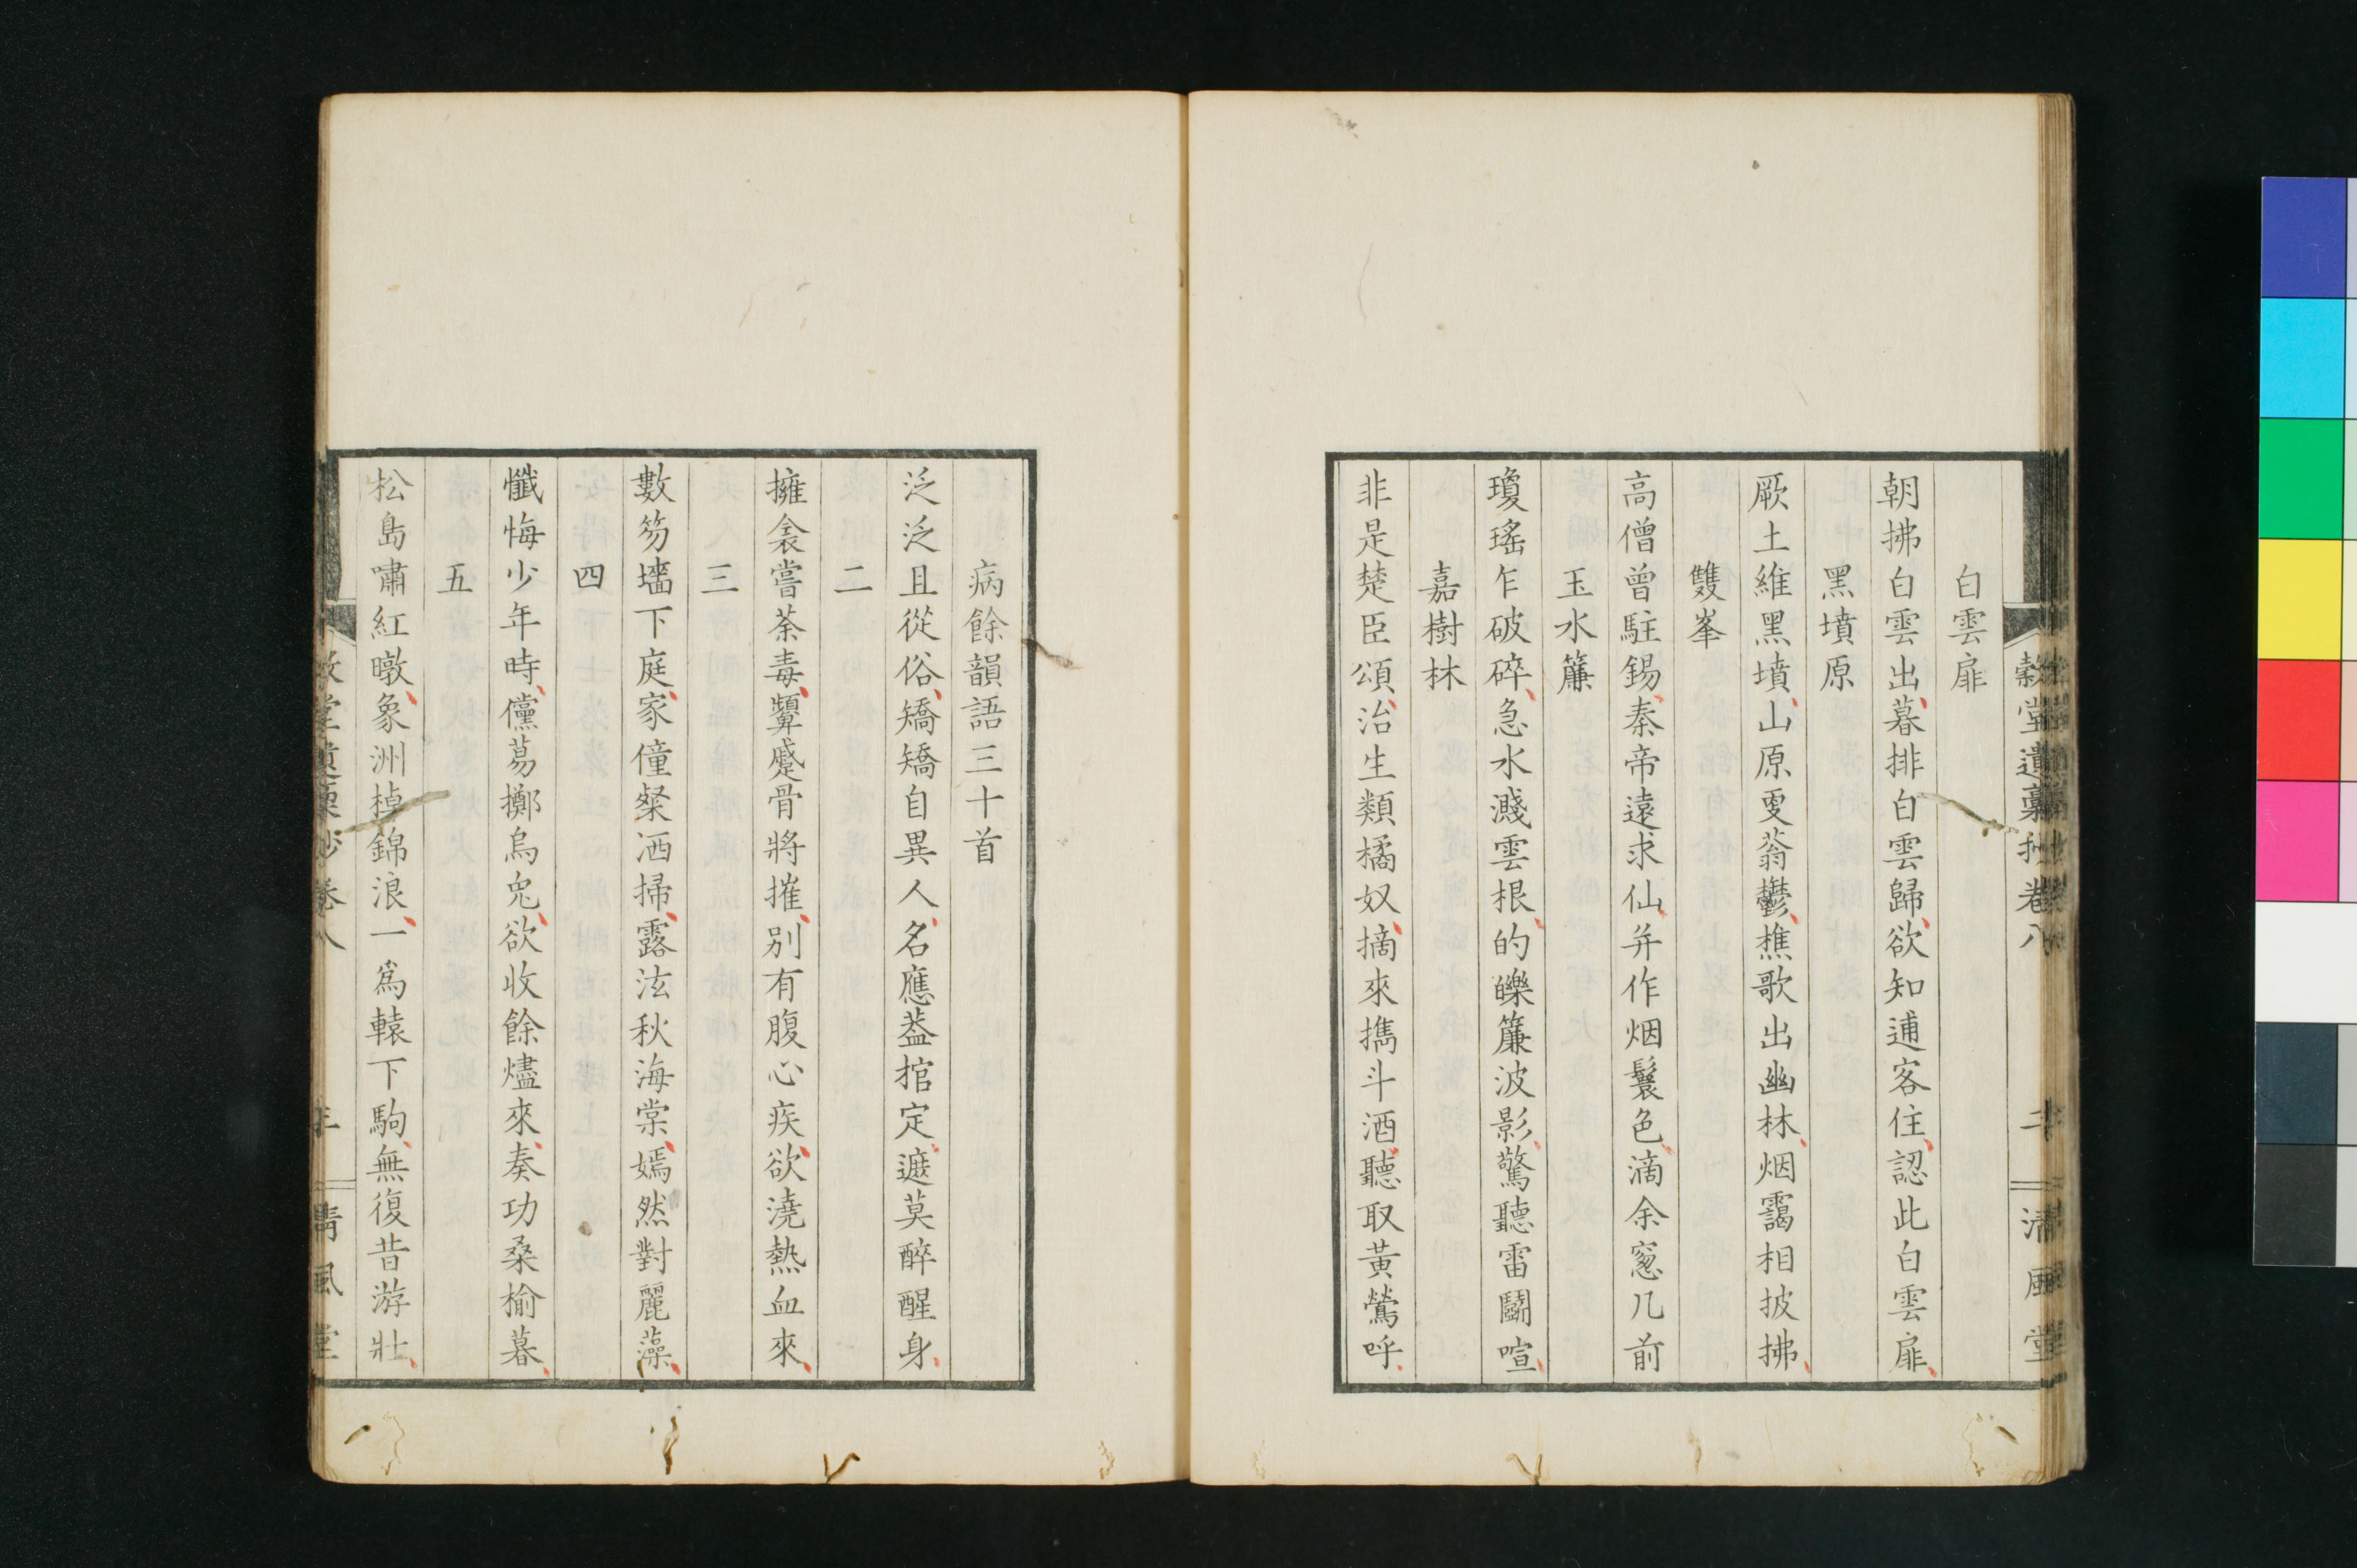 穀堂遺稾抄卷八
清風堂
白雲扉
朝拂白雲出暮排白雲歸欲知逋客住認此白雲扉
黑墳原
厥土維黑墳山原更蓊鬱樵歌出幽林烟靄相披拂
雙峯
高僧曾駐錫秦帝遠求仙并作烟鬟色滴余窓几前
玉水簾
瓊瑤乍破碎急水濺雲根的皪簾波影驚聽雷鬭喧
嘉樹林
非是楚臣頌治生類橘奴摘來擕斗酒聽取黃鶯呼
病餘韻語三十首
泛泛且從俗矯矯自異人名應蓋棺定遮莫醉醒身
二
擁衾嘗荼毒顰蹙骨將摧別有腹心疾欲澆熱血來
三
數笏墻下庭家僮粲洒掃露泫秋海棠嫣然對麗藻
四
懺悔少年時儻蕩擲烏兔欲收餘燼來奏功桑榆暮
五
松島嘯紅暾象洲棹錦浪一爲轅下駒無復昔游壯
堂遺稾抄卷八
清風堂